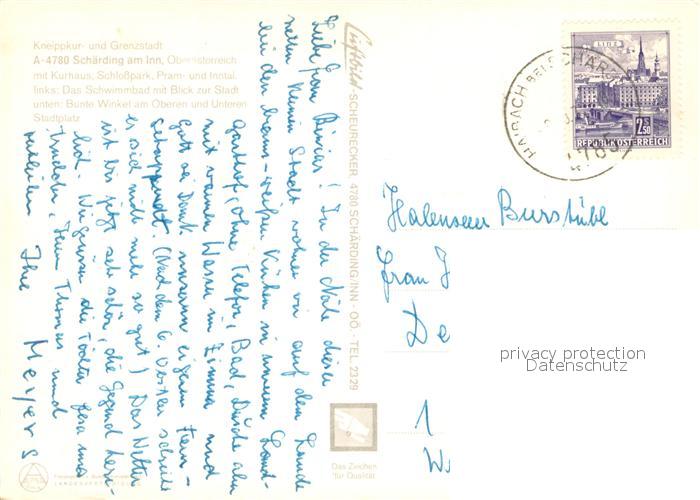 Kneippkur- und Grenzstadt
A-4780 Schärding am Inn, Oberösterreich
mit Kurhaus, Schloßpark, Pram- und Inntal.
links: Das Schwimmbad mit Blick zur Stadt
unten: Bunte Winkel am Oberen und Unteren
Stadtplatz
Liebe Frau ! In der Nähe dieser
netten kleinen Stadt wohnen wir auf dem Lande
bei den braun-weißen Kühen in unserem Land-
gasthof, ohne Telefon, Bad, Dusche aber
mit warmem Wasser im Zimmer und
Gott sei Dank unserem eigenen Fern-
sehapparat. (Nach dem 6. schreibt
es sich nicht mehr so gut) Das Wetter
ist bis jetzt sehr schön, die Gegend herr-
lich. Wir grüßen die Töchter und
Thomas und
Ihre Meyers
Luftbild-SCHEURECKER, 4780 SCHÄRDING/INN - OÖ - TEL. 2329
LINZ
2.50
S
REPUBLIK ÖSTERREICH
HAIBACH BEI SCHÄRD
4785
Halenseer Burstübl
Frau J
De
1
W
privacy protection
Datenschutz
Das Zeichen
für Qualität